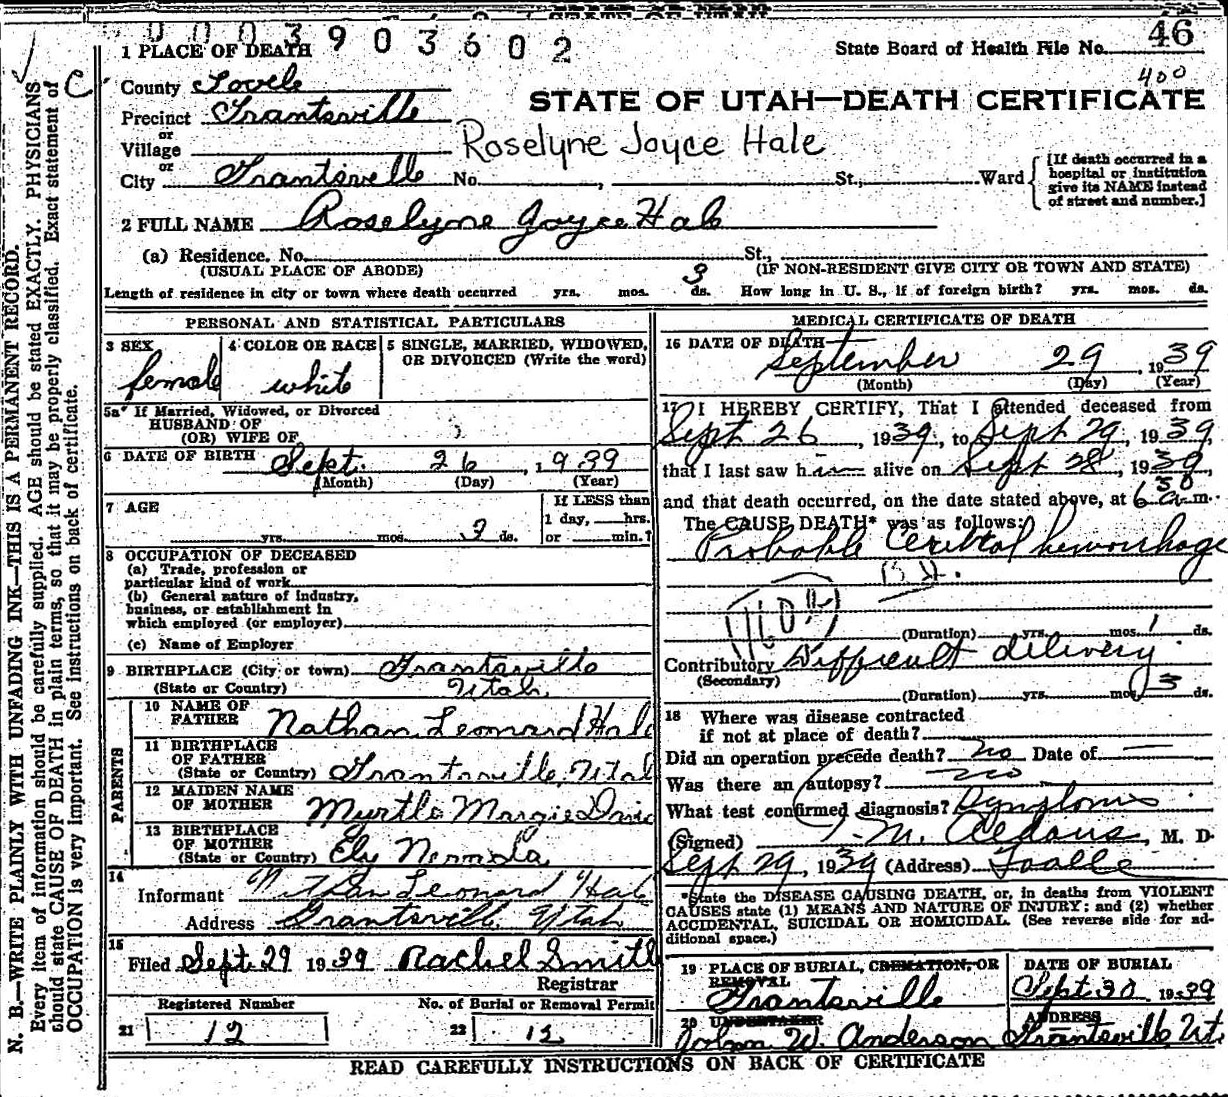 0003903602
1 PLACE OF DEATH
State Board of Health File No. 46
400
County Tooele
STATE OF UTAH—DEATH CERTIFICATE
Precinct Grantsville
or
Village
Roselyne Joyce Hale
or
City Grantsville No. , St., Ward
[If death occurred in a
hospital or institution
give its NAME instead
of street and number.]
2 FULL NAME Roselyne Joyce Hale
(a) Residence. No. St.,
(USUAL PLACE OF ABODE) (IF NON-RESIDENT GIVE CITY OR TOWN AND STATE)
Length of residence in city or town where death occurred yrs. mos. 3 ds. How long in U. S., if of foreign birth? yrs. mos. ds.
PERSONAL AND STATISTICAL PARTICULARS
3 SEX 4 COLOR OR RACE 5 SINGLE, MARRIED, WIDOWED,
OR DIVORCED (Write the word)
female white
5a If Married, Widowed, or Divorced
HUSBAND OF
(OR) WIFE OF
6 DATE OF BIRTH Sept. 26, 1939
(Month) (Day) (Year)
7 AGE If LESS than
1 day, hrs.
yrs. mos. 3 ds. or min.?
8 OCCUPATION OF DECEASED
(a) Trade, profession or
particular kind of work
(b) General nature of industry,
business, or establishment in
which employed (or employer)
(c) Name of Employer
9 BIRTHPLACE (City or town) Grantsville
(State or Country) Utah
PARENTS
10 NAME OF
FATHER Nathan Leonard Hale
11 BIRTHPLACE
OF FATHER
(State or Country) Grantsville, Utah
12 MAIDEN NAME
OF MOTHER Myrtle Margie Davis
13 BIRTHPLACE
OF MOTHER
(State or Country) Ely Nevada
14
Informant Nathan Leonard Hale
Address Grantsville, Utah
15
Filed Sept. 29 1939 Rachel Smith
Registrar
Registered Number No. of Burial or Removal Permit
21 12 22 12
MEDICAL CERTIFICATE OF DEATH
16 DATE OF DEATH
September 29, 1939
(Month) (Day) (Year)
17 I HEREBY CERTIFY, That I attended deceased from
Sept 26, 1939, to Sept 29, 1939,
that I last saw h alive on Sept 28, 1939,
and that death occurred, on the date stated above, at 6 30 a.m.
The CAUSE DEATH* was as follows:
Probable Cerebral hemorrhage
160
(Duration) yrs. mos. 1 ds.
Contributory Difficult delivery
(Secondary)
(Duration) yrs. mos. 3 ds.
18 Where was disease contracted
if not at place of death?
Did an operation precede death? no Date of
Was there an autopsy? no
What test confirmed diagnosis? Symptoms
(Signed) M. , M. D.
Sept 29, 1939 (Address) Tooele
*State the DISEASE CAUSING DEATH, or, in deaths from VIOLENT
CAUSES state (1) MEANS AND NATURE OF INJURY; and (2) whether
ACCIDENTAL, SUICIDAL OR HOMICIDAL. (See reverse side for ad-
ditional space.)
19 PLACE OF BURIAL, CREMATION, OR
REMOVAL DATE OF BURIAL
Grantsville Sept 30 1939
20 UNDERTAKER ADDRESS
W. Anderson Grantsville Ut.
READ CAREFULLY INSTRUCTIONS ON BACK OF CERTIFICATE
N. B.—WRITE PLAINLY WITH UNFADING INK—THIS IS A PERMANENT RECORD.
Every item of information should be carefully supplied. AGE should be stated EXACTLY. PHYSICIANS
should state CAUSE OF DEATH in plain terms, so that it may be properly classified. Exact statement of
OCCUPATION is very important. See instructions on back of certificate.